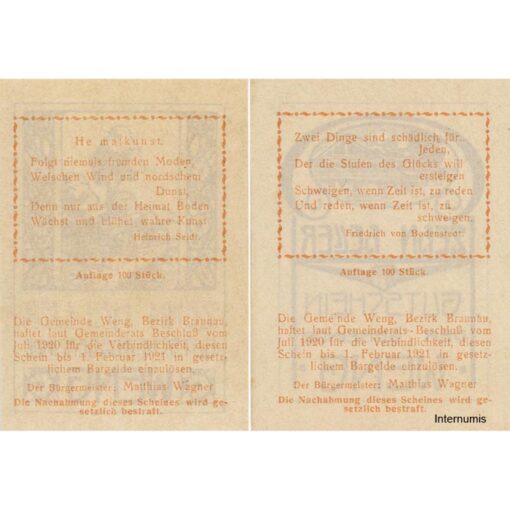 He matkunst.
Folgt niemals fremden Moden,
Welschen Wind und nordschem
Dunst,
Denn nur aus der Heimat Boden
Wächst und blühet wahre Kunst
Heinrich Seidl.
Auflage 100 Stück.
Die Gemeinde Weng, Bezirk Braunau,
haftet laut Gemeinderats-Beschluß vom
Juli 1920 für die Verbindlichkeit, diesen
Schein bis 1. Februar 1921 in gesetz-
lichem Bargelde einzulösen.
Der Bürgermeister: Matthias Wagner
Die Nachahmung dieses Scheines wird ge-
setzlich bestraft.
Zwei Dinge sind schädlich für
Jeden,
Der die Stufen des Glücks will
ersteigen
Schweigen, wenn Zeit ist, zu reden
Und reden, wenn Zeit ist, zu
schweigen.
Friedrich von Bodenstedt.
Auflage 100 Stück.
Die Gemeinde Weng, Bezirk Braunau,
haftet laut Gemeinderats-Beschluß vom
Juli 1920 für die Verbindlichkeit, diesen
Schein bis 1. Februar 1921 in gesetz-
lichem Bargelde einzulösen.
Der Bürgermeister: Matthias Wagner
Die Nachahmung dieses Scheines wird ge-
setzlich bestraft.
Internumis